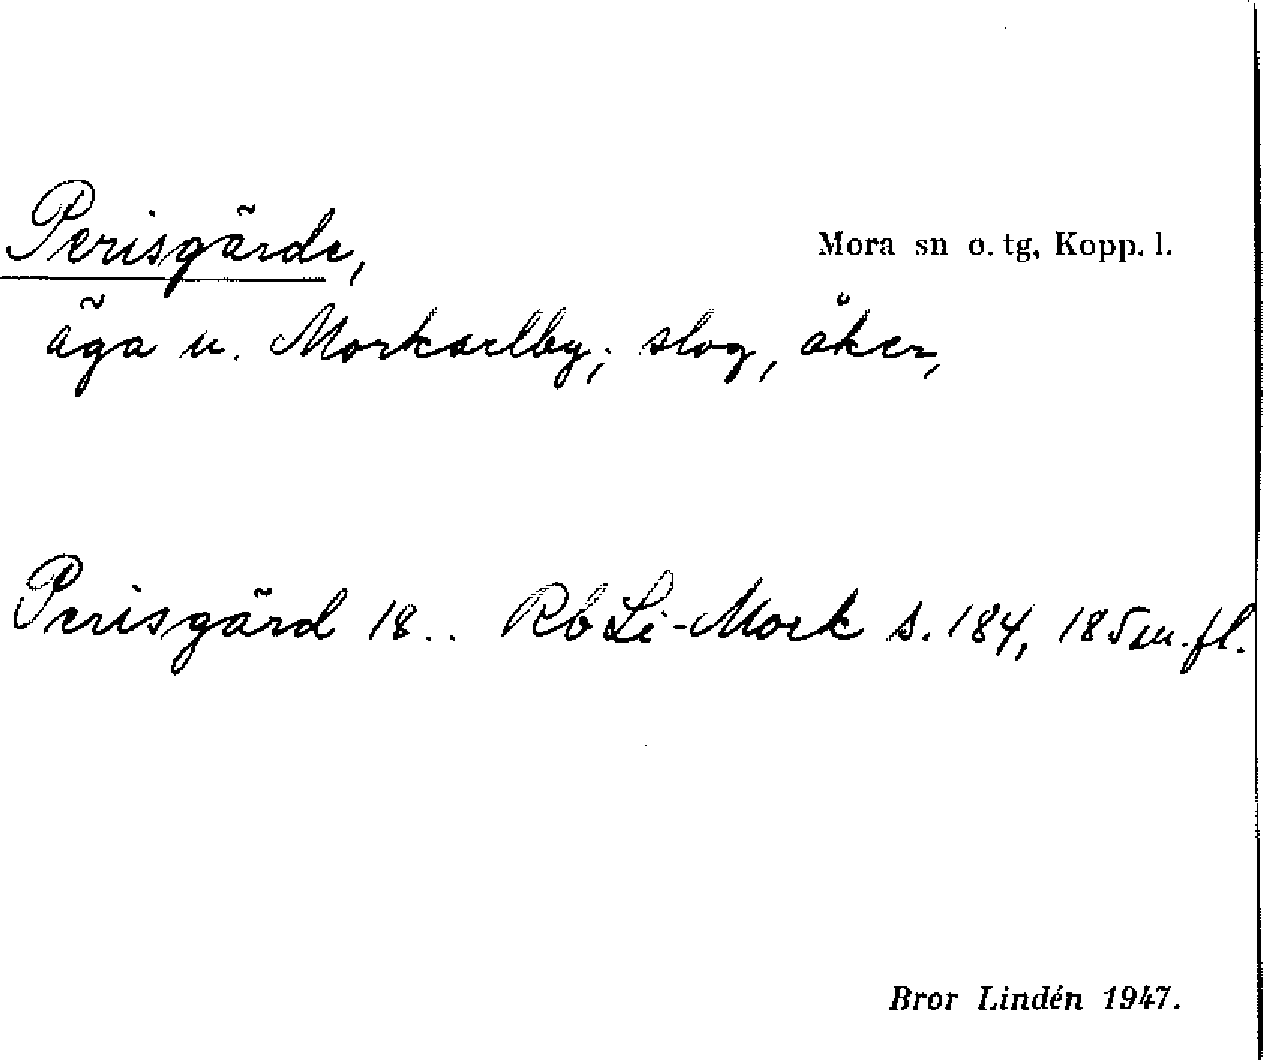 Perisgärde,
Mora sn o. tg, Kopp. l.
äga u. Morkarlby; slog, åker,
Perisgärd 18.. Rb Li-Mork s. 184, 185 m. fl.
Bror Lindén 1947.